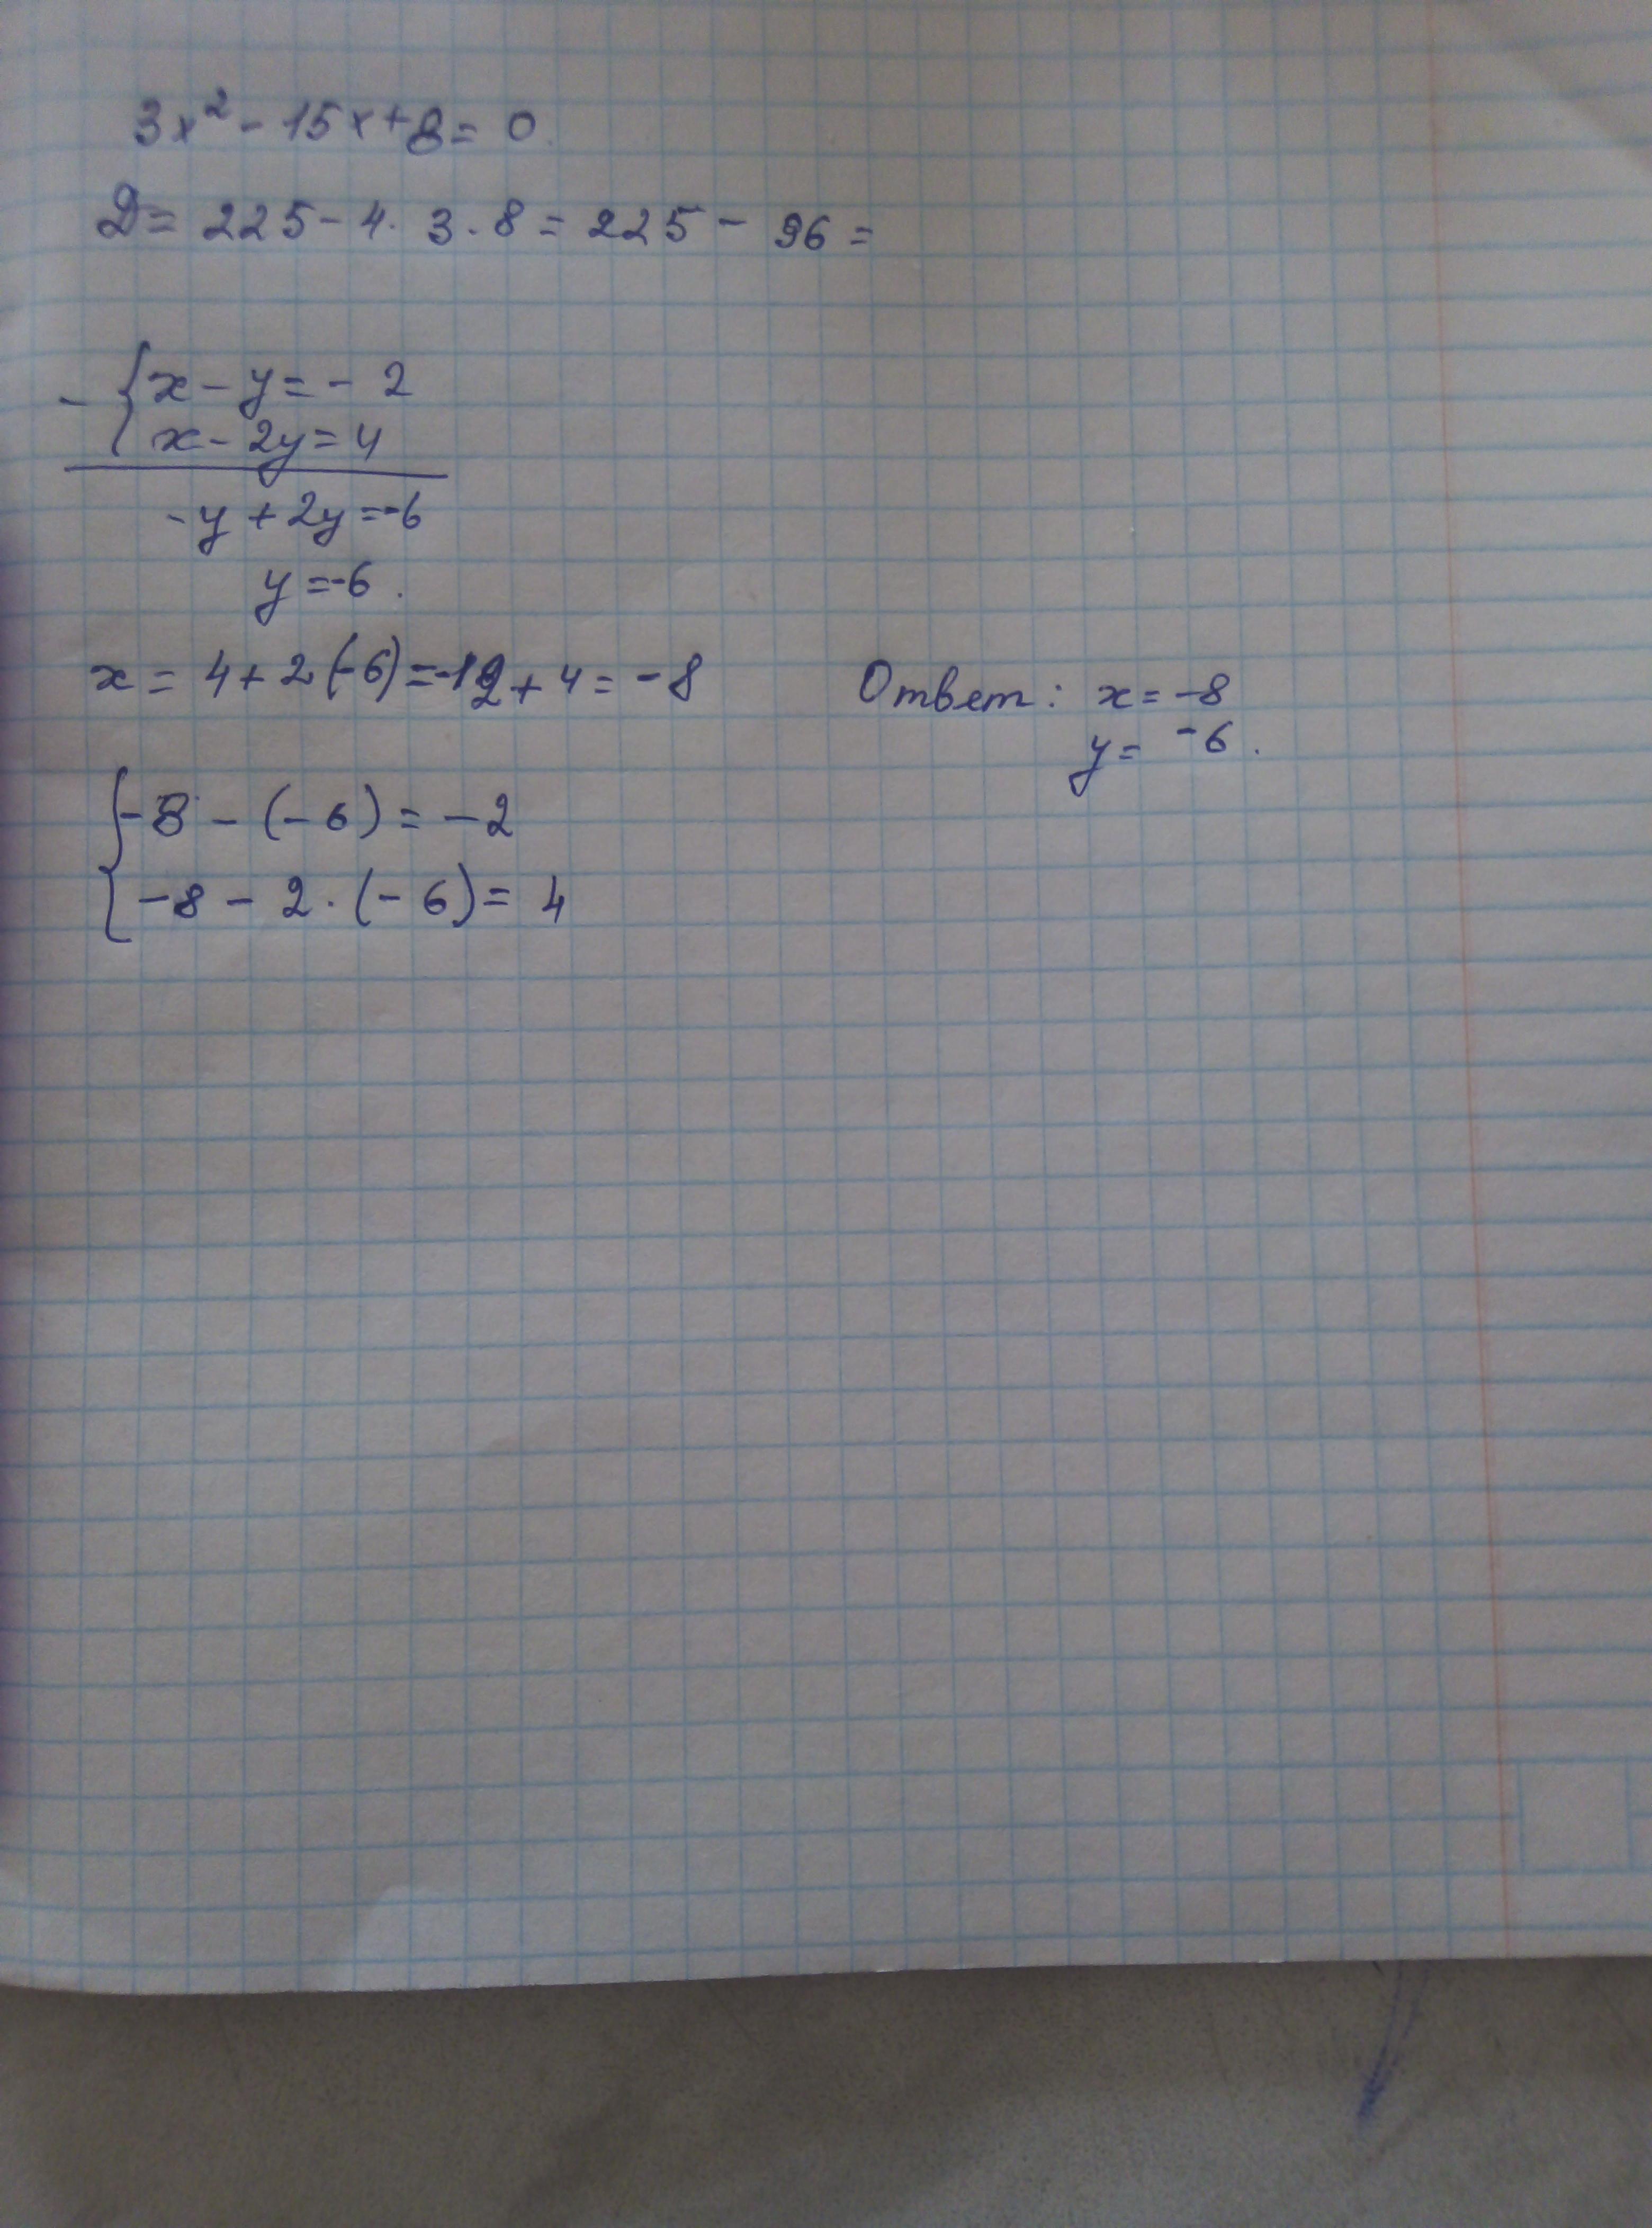 3x² - 15x + 8 = 0.
D = 225 - 4 · 3 · 8 = 225 - 96 =
- { x - y = - 2
x - 2y = 4
-y + 2y = -6
y = -6.
x = 4 + 2(-6) = -12 + 4 = -8 Ответ: x = -8
y = -6.
{ -8 - (-6) = -2
-8 - 2 · (-6) = 4